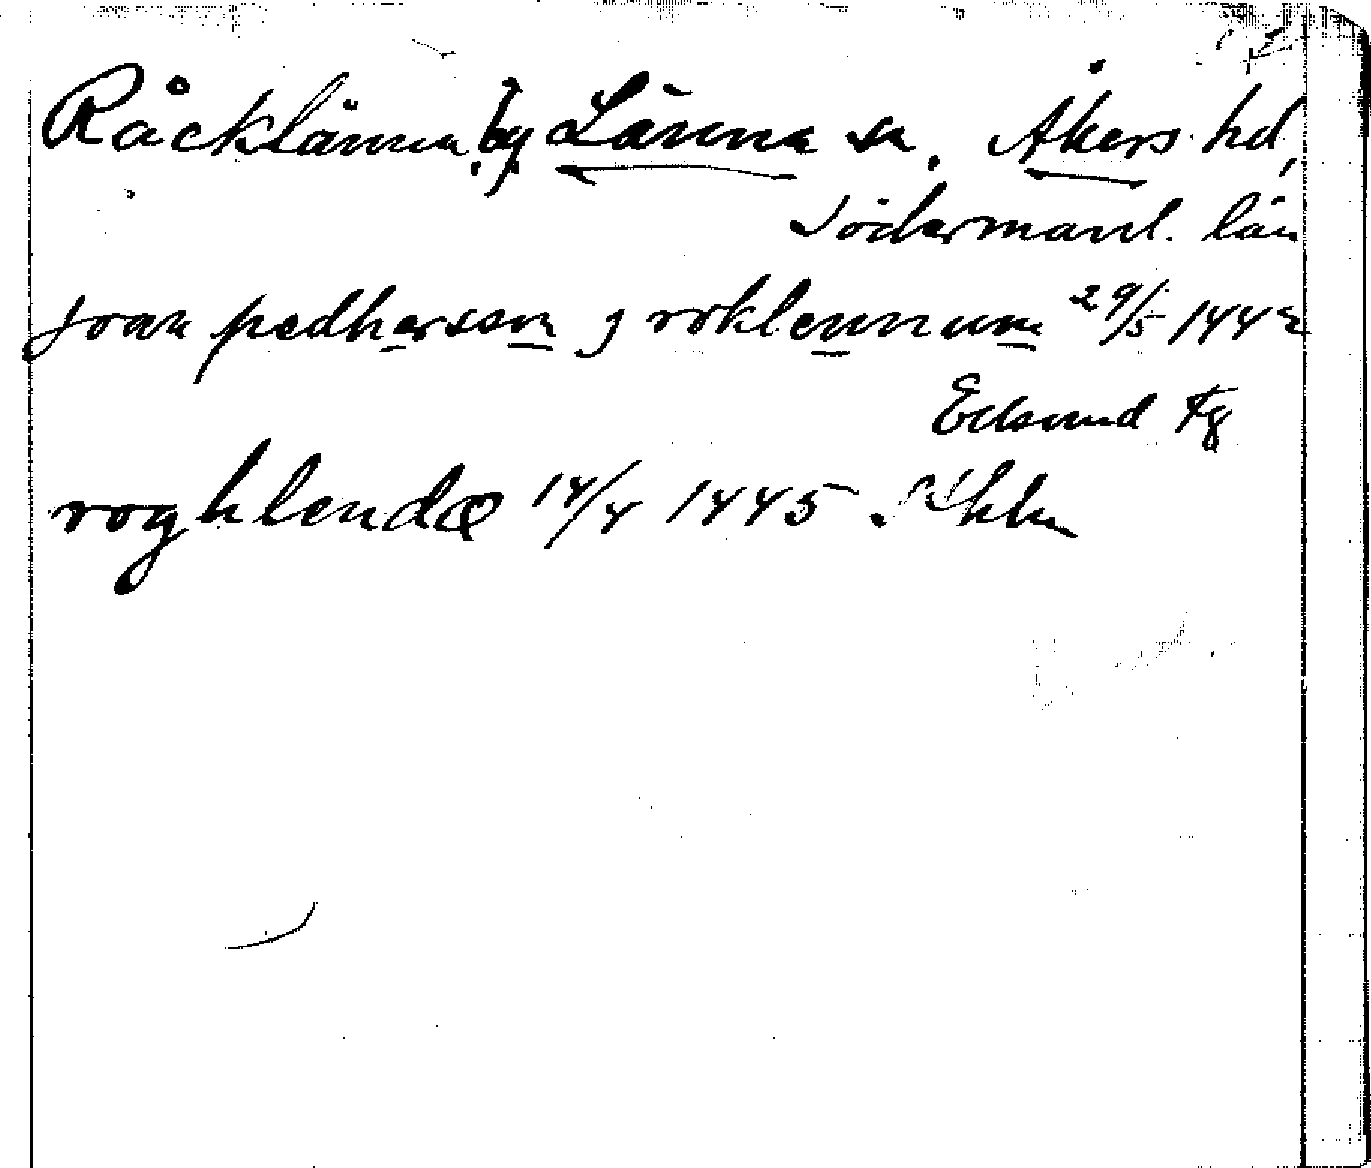 Råcklänna, by Länna sn, Åkers hd,
Södermanl. län
joan pedhersson j roklennum 29/5 1442
Edsund Fg
roghlendæ 14/4 1445